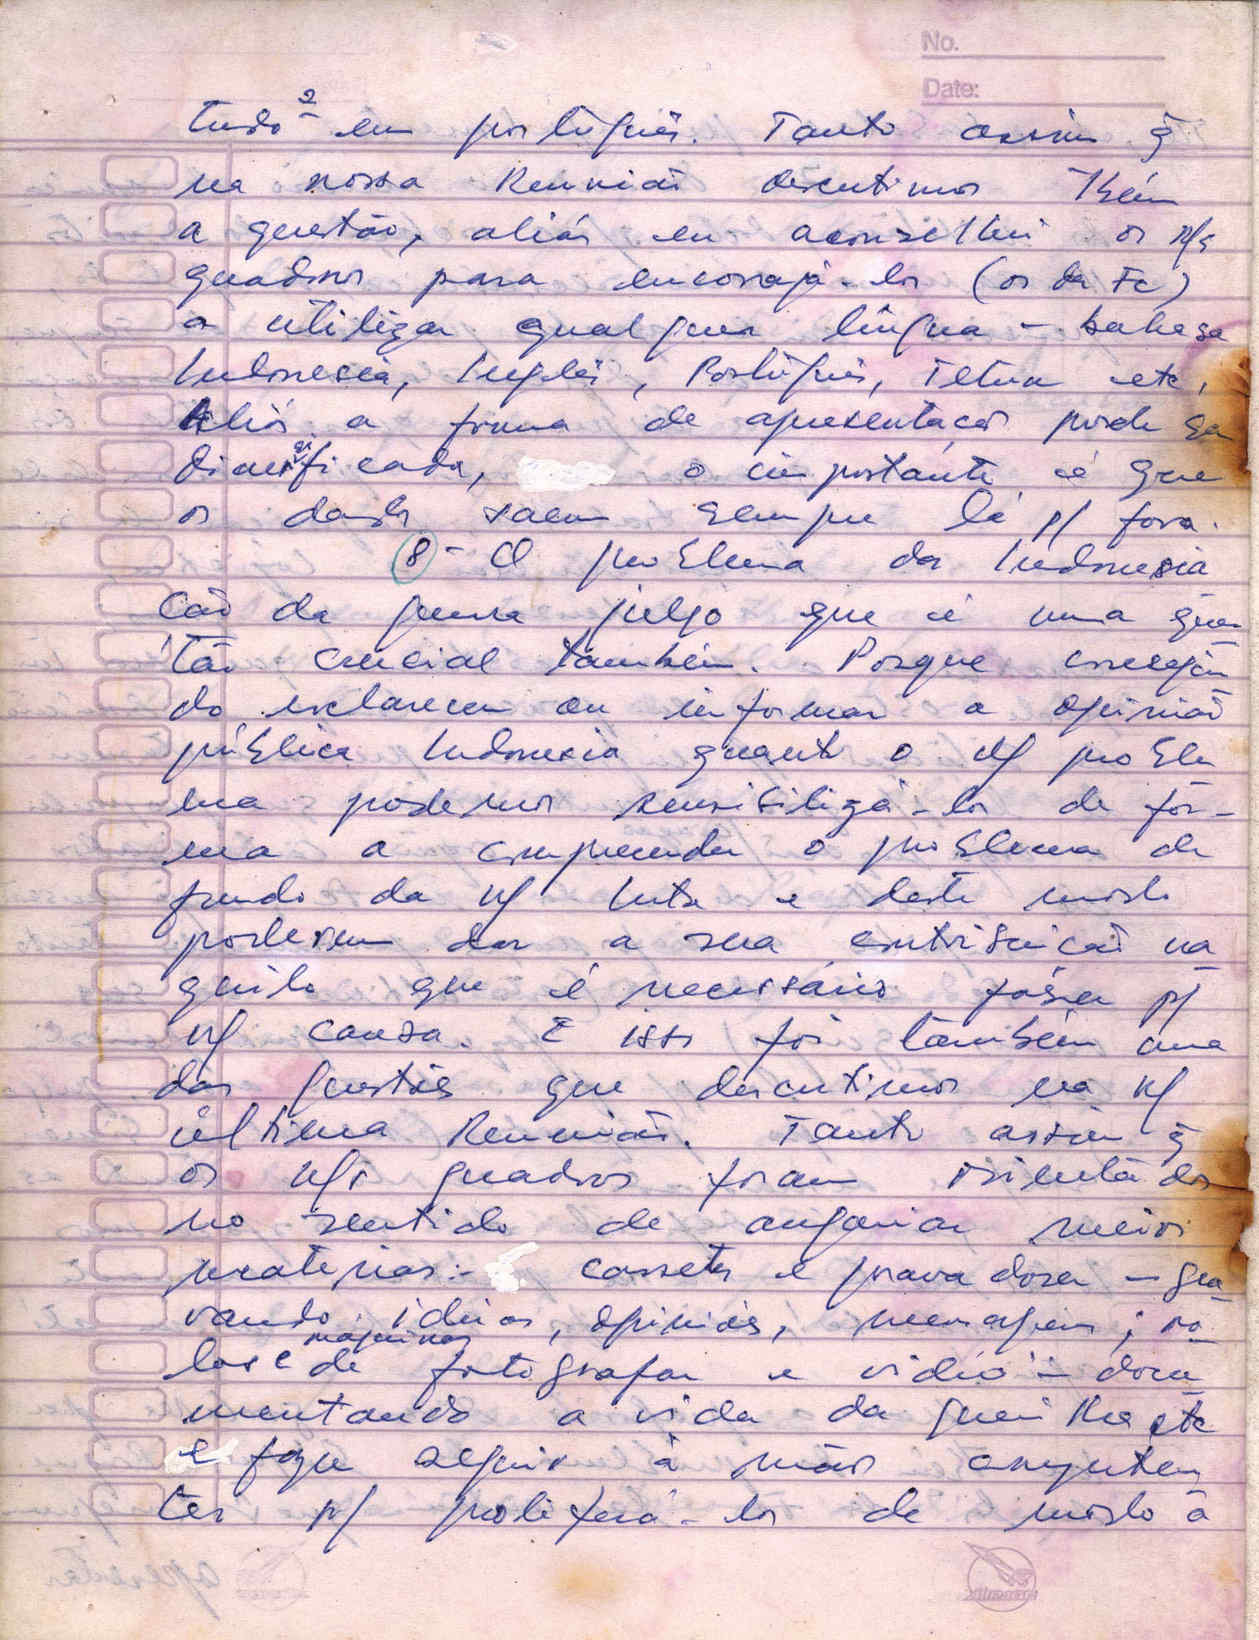 No.
Date:
2
tudo em português. Tanto assim q̃
na nossa Reunião discutimos tbém
a questão, aliás eu aconselhei os n/s
quadros para encorajá-los (os da Fc)
a utilizar qualquer língua - bahasa
Indonesia, Inglês, Português, Tetun etc.
Aliás a forma de apresentação pode ser
diversificada, o importante é que
os dados saem sempre lá p/ fora.
8- O problema da Indonesia
ção da guerra julgo que é uma ques
tão crucial também. Porque conseguin
do esclarecer ou informar a opinião
pública Indonesia quanto o n/ proble
ma podemos sensibilizá-los de for-
ma a compreender o problema de
fundo da n/ luta e deste modo
poderem dar a sua contribuição na
quilo que é necessário fazer p/
n/ causa. E isso foi também uma
das questões que discutimos na n/
última Reunião. Tanto assim q̃
os n/s quadros foram orientados
no sentido de angariar meios
materiais:- cassetes e gravadores - gra-
vando ideias, opiniões, mensagens; ro-
los e máquinas de fotografar e vídio - docu
mentando a vida da guerrilha etc
e fazer seguir à mãos competen
tes p/ proliferá-los de modo a